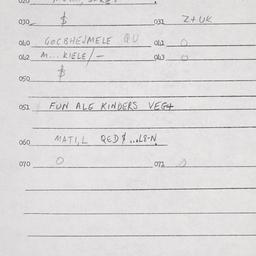 020
030 $ 031 Z+UK
040 GOCBHEJMELE QU 041 0
042 M...KIELE/- 043 0
$
051 FUN ALG KINDERS VEG+
060 MATI,L QED $...L8-N
070 0 071 0